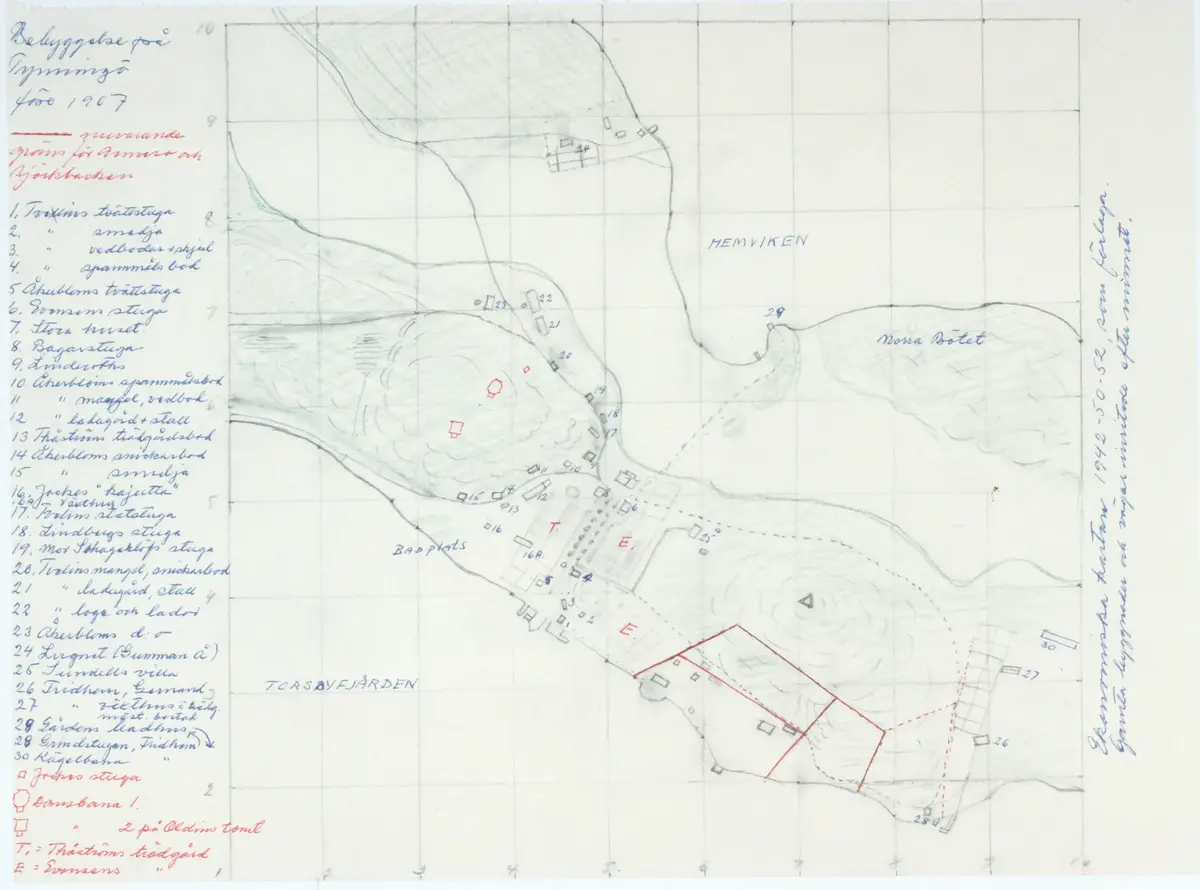 Bebyggelse på
Tynningö
före 1907
nuvarande
gräns för Annero och
Björkbacken
1. Tvelins tvättstuga
2. " smedja
3. " vedbodar + skjul
4. " spannmålsbod
5 Åkerbloms tvättstuga
6. Evonsens stuga
7. Stora huset
8. Bagarstuga
9. Linderoths
10 Åkerbloms spannmålsbod
11 " mangel, vedbod
12 " ladugård + stall
13 Thåströms trädgårdsbod
14 Åkerbloms snickarbod
15 " smedja
16. Jockes "kajutta"
16A Växthus
17. statstuga
18. Lindbergs stuga
19. Mor Skageklöfs stuga
20. Tvelins mangel, snickarbod
21 " ladugård, stall
22 " loge och lador
23 Åkerbloms d:o
24 Lugnet (Gumman Å)
25 Sundells villa
26 Fridhem,
27 " växthus
bortåt
28 Gårdens badhus
28 Grindstugan, Fridhem
30 Kägelbana "
Jockes stuga
Dansbana 1.
" 2 på Oldins tomt
T. = Thåströms trädgård
E = Evonsens "
10
9
8
7
6
5
4
2
1
2
3
4
5
6
7
8
9
10
HEMVIKEN
Norra Bötet
BADPLATS
TORSBYFJÄRDEN
24
23
22
21
20
19
18
17
29
9
10
11
12
14
15
13
16
16A.
8
7
6
5
4
3
2
1
25
T.
E.
E.
30
27
26
28
Ekonomiska kartan 1942-50-52, som förlaga.
Gamla byggnader och vägar inritade efter minnet.